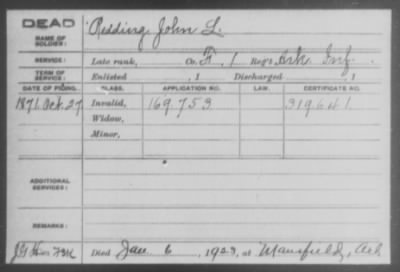 DEAD
NAME OF SOLDIER: Redding, John L.
SERVICE: Late rank, Co. F, 1 Reg't Ark Inf.
TERM OF SERVICE: Enlisted , 1 Discharged , 1
DATE OF FILING. CLASS. APPLICATION NO. LAW. CERTIFICATE NO.
1871. Oct. 27 Invalid, 169.753. 319641.
Widow,
Minor,
ADDITIONAL SERVICES:
REMARKS:
Died Jan. 6, 1923, at Mansfield, Ark